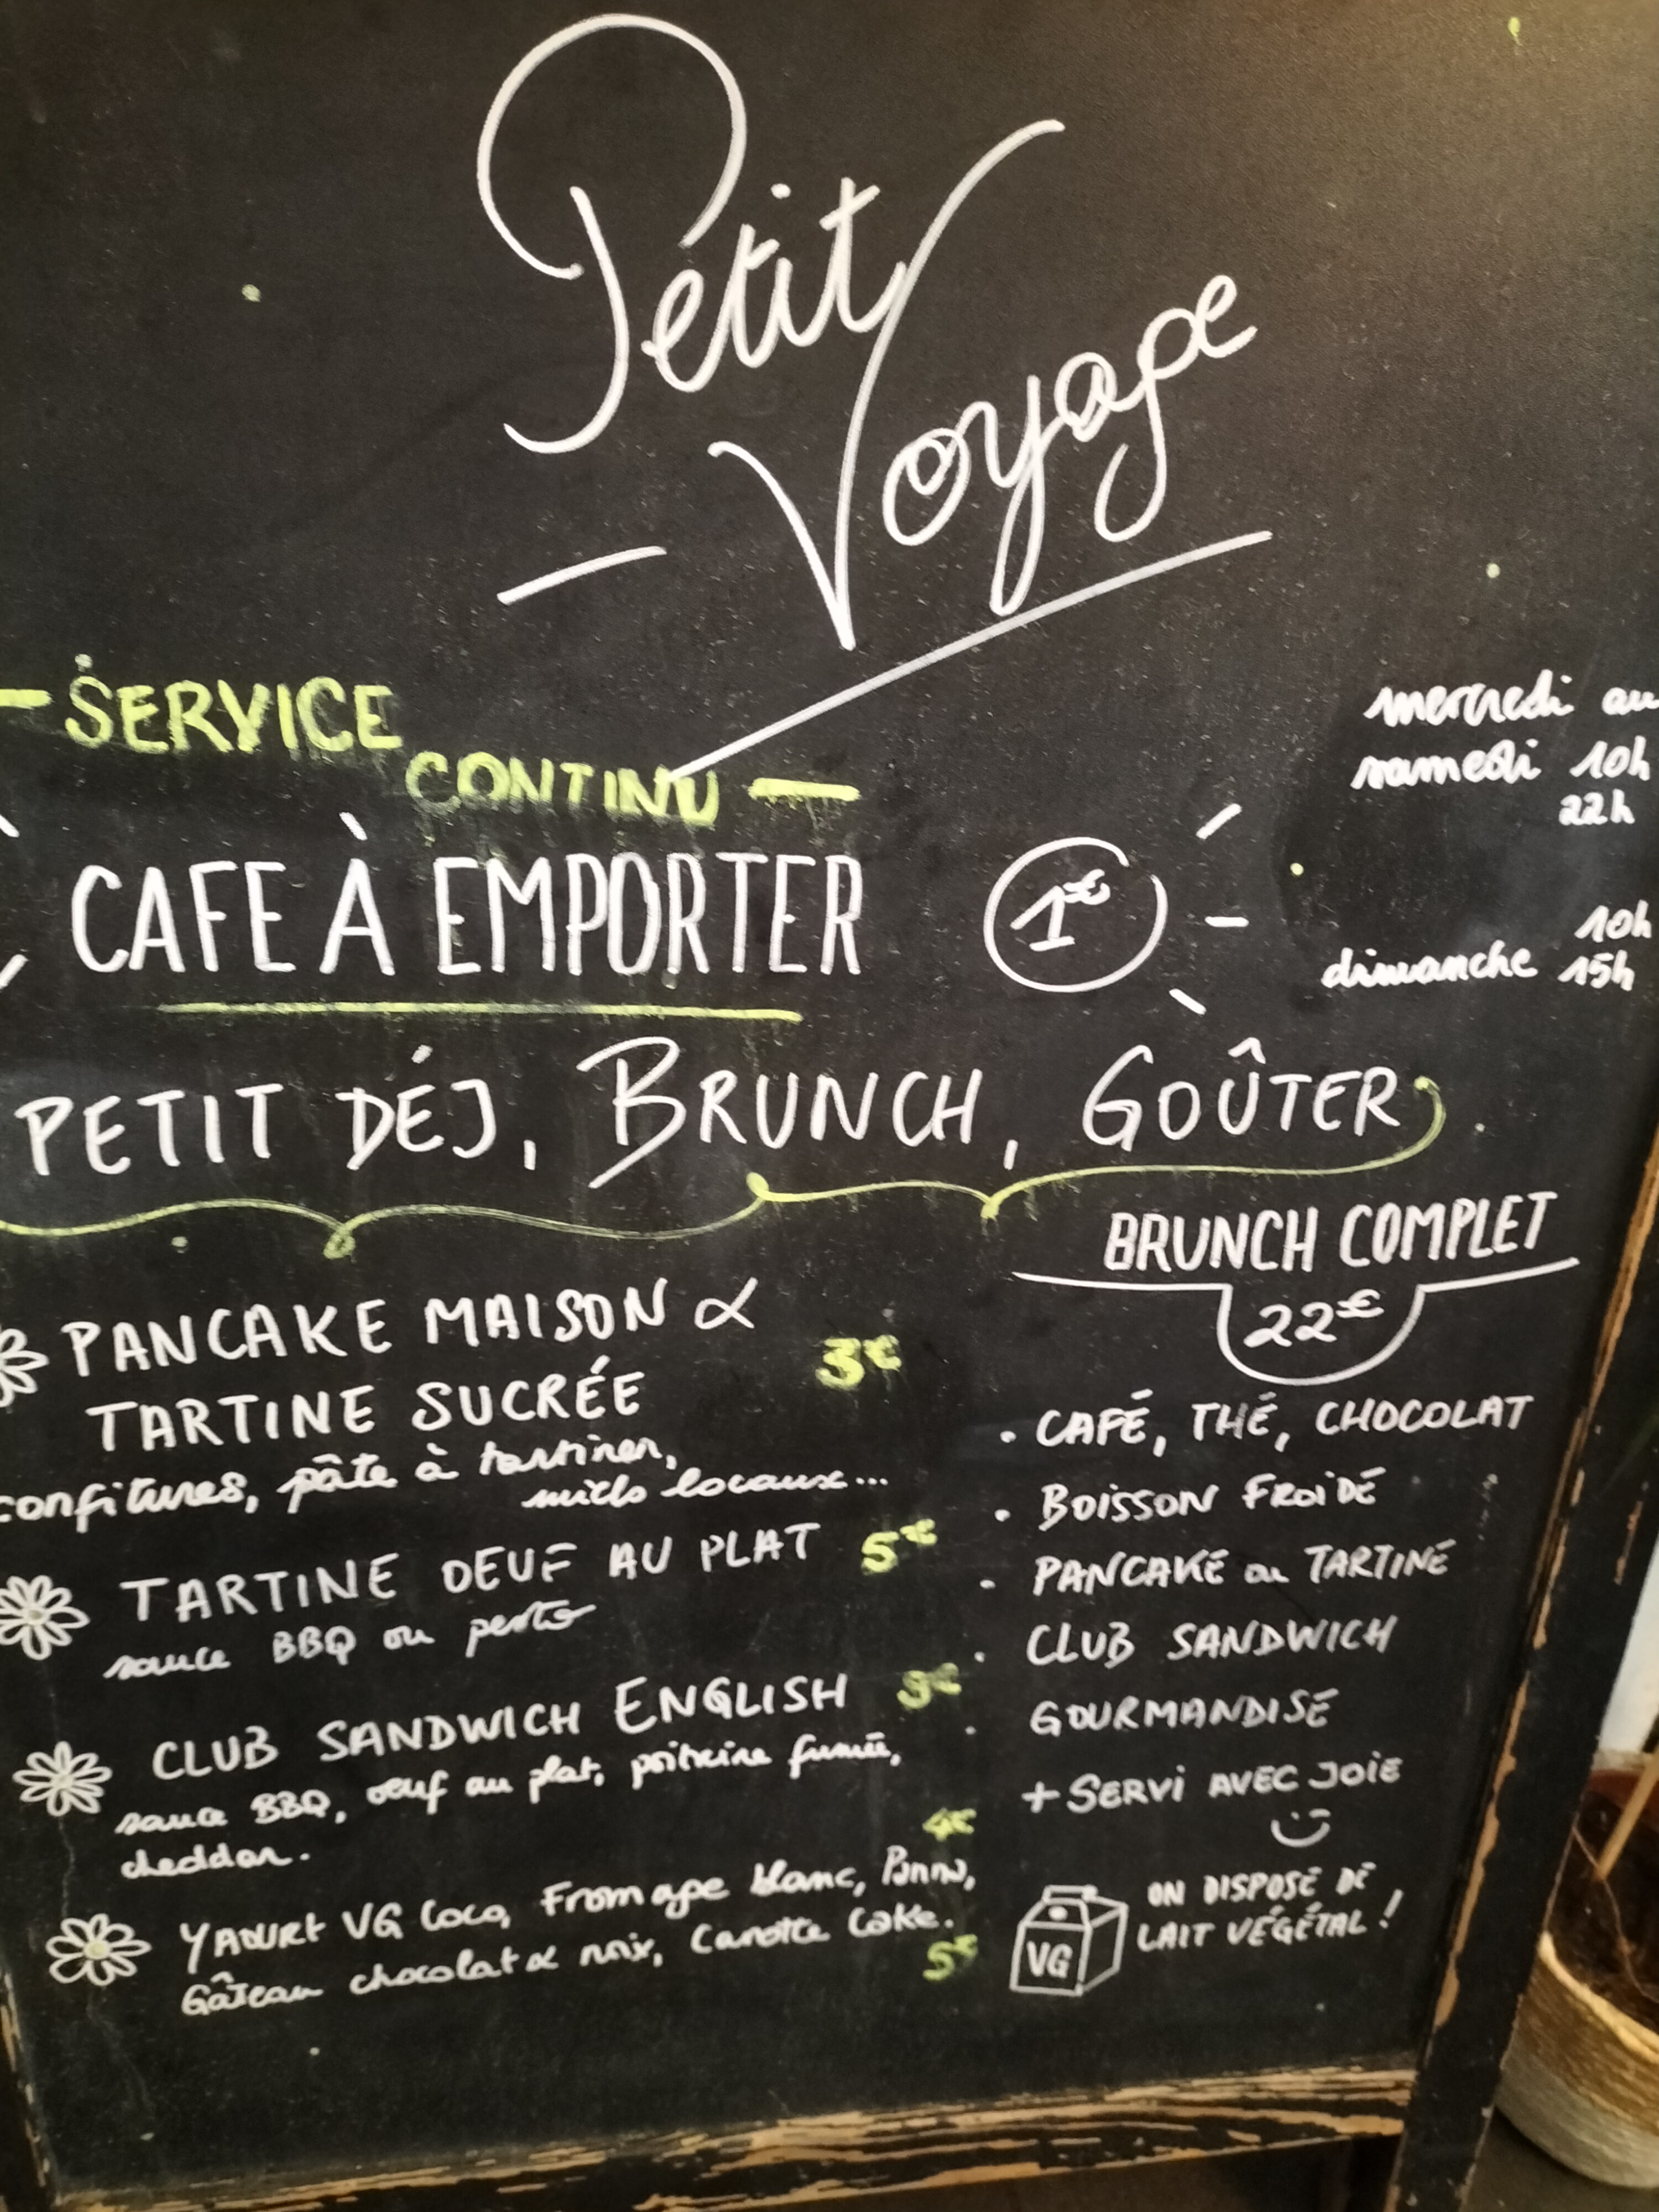 Petit
Voyage
SERVICE
CONTINU
mercredi au
samedi 10h
22h
CAFE À EMPORTER 1€
10h
dimanche 15h
PETIT DÉJ, BRUNCH, GOÛTER
BRUNCH COMPLET
22€
PANCAKE MAISON &
TARTINE SUCRÉE 3€
confitures, pâte à tartiner,
miels locaux...
TARTINE OEUF AU PLAT 5€
sauce BBQ ou pesto
CLUB SANDWICH ENGLISH 9€
sauce BBQ, oeuf au plat, poitrine fumée,
cheddar.
4€
YAOURT VG Coco, Fromage blanc,
Gâteau chocolat & noix, Carotte Cake.
5€
• CAFÉ, THÉ, CHOCOLAT
• BOISSON FROIDE
• PANCAKE ou TARTINE
• CLUB SANDWICH
• GOURMANDISE
+ SERVI AVEC JOIE
VG
ON DISPOSE DE
LAIT VÉGÉTAL !